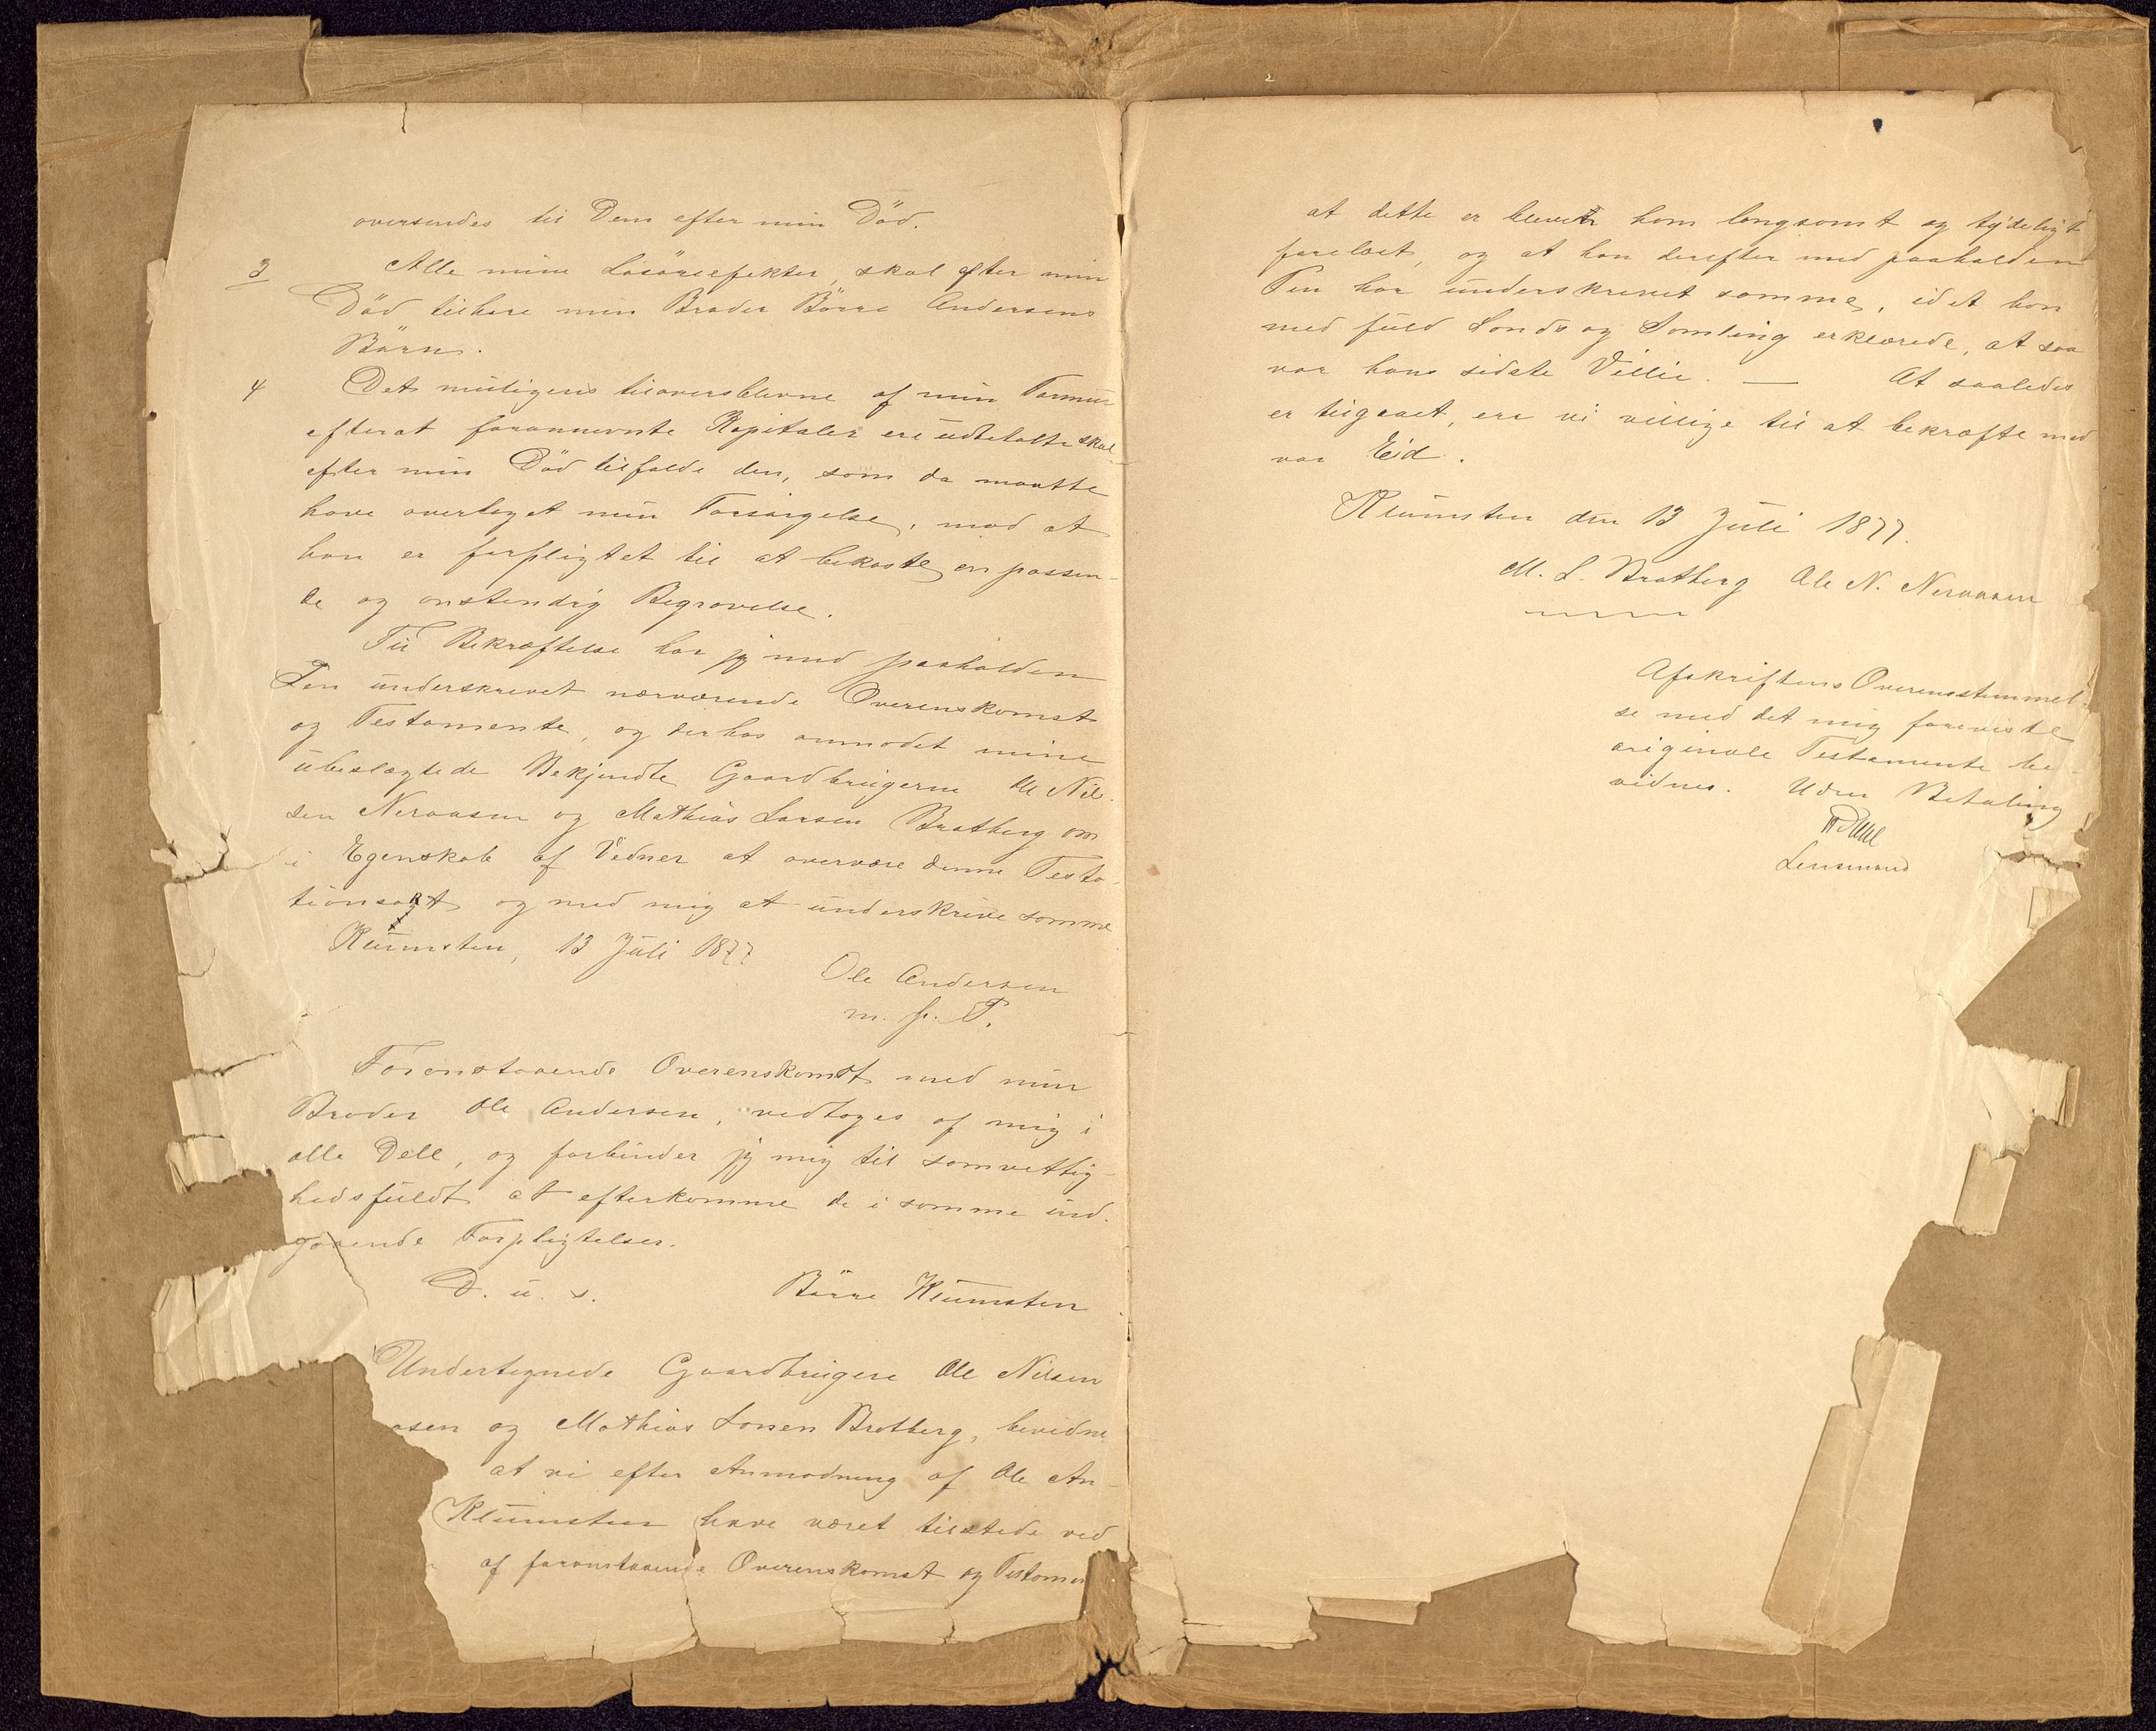 oversendes til Dem efter min Död.
3 Alle mine Lösöreefekter, skal efter min
Död tilhøre min Broder Börre Andersens
Börn.
4 Det muligens tiloversblevne af min Formue
efterat forannevnte Kapitaler ere udbetalte skal
efter min Död tilfalde den, som da maatte
have overtaget min Forsörgelse, mod at
han er forpligtet til at bekoste en passen-
de og anstendig Begravelse.
Til Bekræftelse har jeg med paaholden
Pen underskrevet nærværende Overenskomst
og Testamente, og derhos anmodet mine
ubeslægtede Bekjendte Gaardbrugerne Ole Nil-
sen Neraasen og Mathias Larsen Bratberg om
i Egenskab af Vidner at overvære denne Testa-
tionsakt og med mig at underskrive samme
Klumsten, 13 Juli 1877
Ole Andersen
m. p. P.
Foranstaaende Overenskomst med min
Broder Ole Andersen, vedtages af mig i
alle Dele, og forbinder jeg mig til samvittig-
hedsfuldt at efterkomme de i samme ind-
gaaende Forpligtelser.
D. u. s. Börre Klumsten
Undertegnede Gaardbrugere Ole Nilsen
aasen og Mathias Larsen Bratberg, bevidne
at vi efter Anmodning af Ole An-
Klumsten have været tilstede ved
af foranstaaende Overenskomst og Testamen
at dette er blevet ham langsomt og tydeligt
forelæst, og at han derefter med paaholden
Pen har underskrevet samme, idet han
med fuld Sands og Samling erklærede, at saa
var hans sidste Villie. — At saaledes
er tilgaaet, ere vi villige til at bekræfte med
vor Eid.
Klumsten den 13 Juli 1877.
M. L. Bratberg Ole N. Neraasen
Afskriftens Overensstemmel-
se med det mig foreviste
originale Testamente be-
vidnes. Uden Betaling
Lensmand